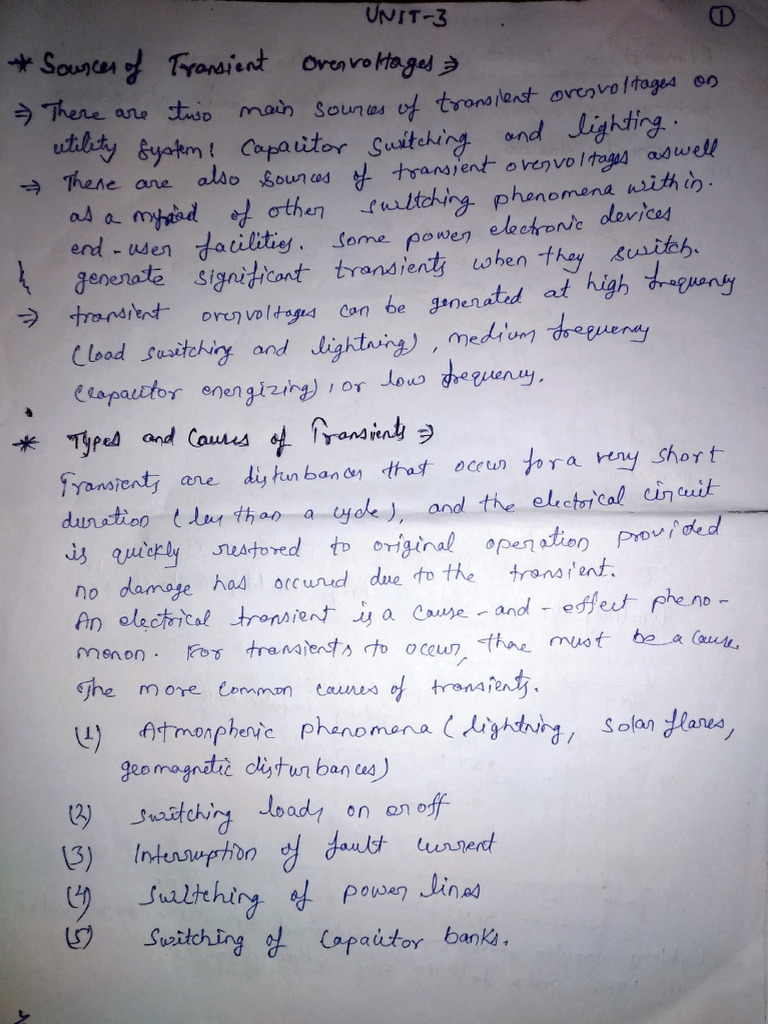 UNIT-3
1
* Sources of Transient Overvoltages ⇒
⇒ There are two main sources of transient overvoltages on
utility system: Capacitor Switching and lighting.
⇒ There are also sources of transient overvoltages aswell
as a myriad of other switching phenomena within.
end-user facilities. Some power electronic devices
generate significant transients when they switch.
⇒ transient overvoltages can be generated at high frequency
(load switching and lightning), medium frequency
(capacitor energizing), or low frequency.
* Types and Causes of Transients ⇒
Transients are disturbances that occur for a very short
duration (less than a cycle), and the electrical circuit
is quickly restored to original operation provided
no damage has occured due to the transient.
An electrical transient is a cause-and-effect pheno-
menon. For transients to occur, there must be a cause.
The more common causes of transients.
(1) Atmospheric phenomena (lightning, solar flares,
geomagnetic disturbances)
(2) switching loads on or off
(3) Interruption of fault current
(4) Switching of power lines
(5) Switching of capacitor banks.